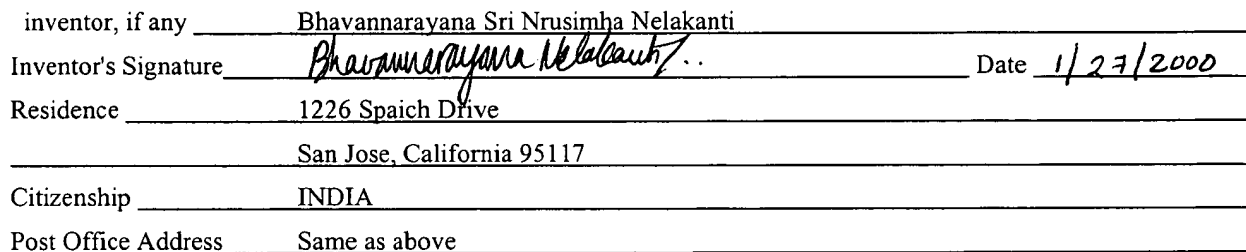 inventor, if any Bhavannarayana Sri Nrusimha Nelakanti
Inventor's Signature Bhavannarayana Nelakanti.. Date 1/27/2000
Residence 1226 Spaich Drive
San Jose, California 95117
Citizenship INDIA
Post Office Address Same as above